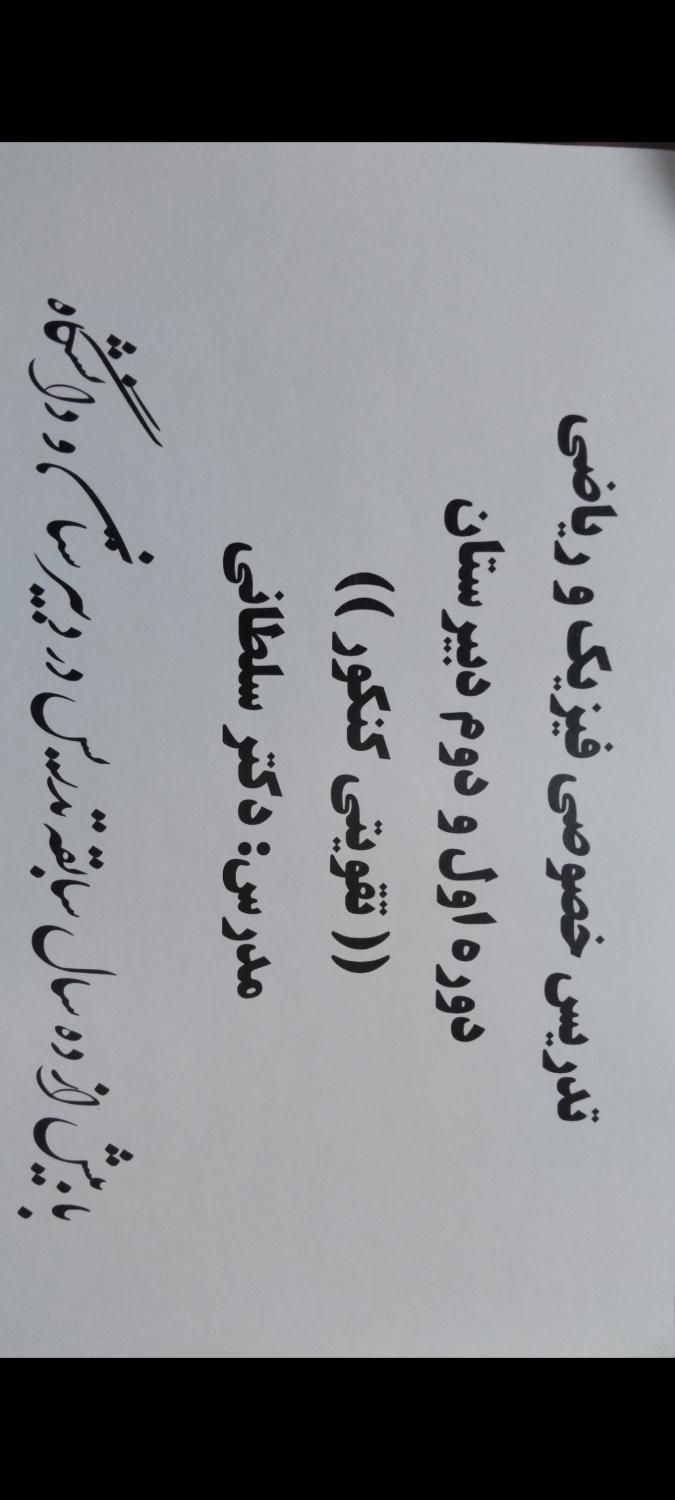 تدریس خصوصی فیزیک و ریاضی
دوره اول و دوم دبیرستان
(( تقویتی کنکور ))
مدرس: دکتر سلطانی
با بیش از ده سال سابقه تدریس در دبیرستان و دانشگاه